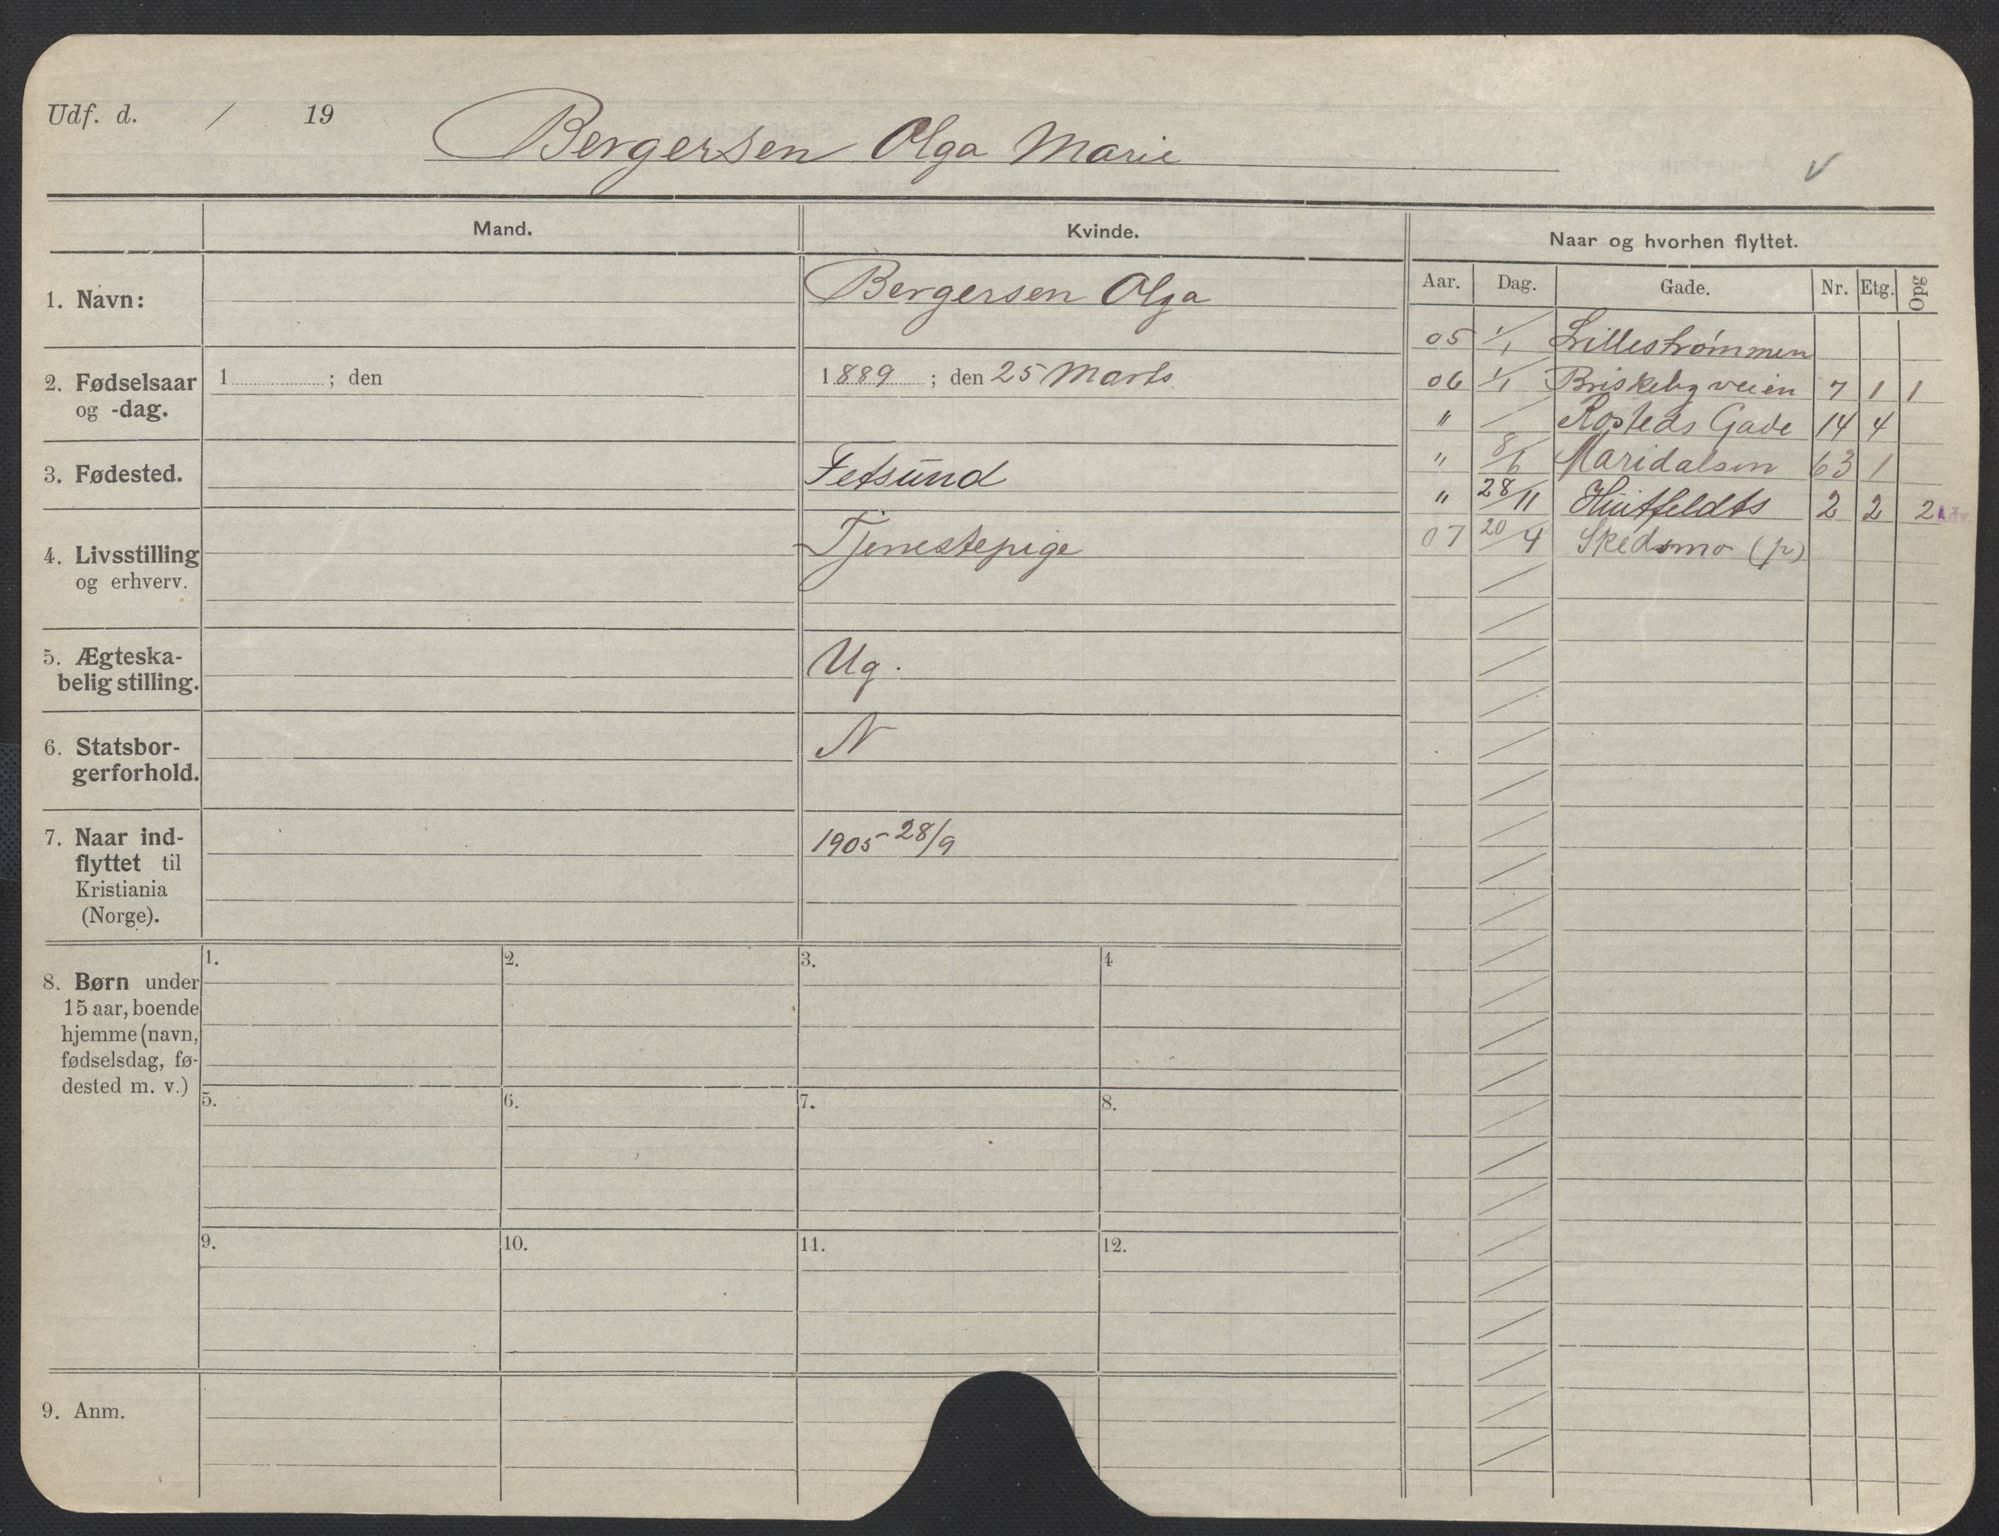 Udf. d. / 19 Bergersen Olga Marie
Mand. Kvinde. Naar og hvorhen flyttet.
Aar. Dag. Gade. Nr. Etg. Opg
1. Navn: Bergersen Olga
05 1/1 Lillestrømmen
2. Fødselsaar 1 ; den 1889 ; den 25 Marts
og -dag.
06 1/1 Briskebyveien 7 1 1
" / Rosteds Gade 14 4
3. Fødested. Fetsund
" 8/6 Maridalsvn 63 1
" 28/11 Huitfeldts 2 2 2 Adv.
4. Livsstilling Tjenestepige
og erhverv.
07 20/4 Skedsmo (p)
5. Ægteska- Ug.
belig stilling.
6. Statsbor- N
gerforhold.
7. Naar ind- 1905 28/9
flyttet til
Kristiania
(Norge).
8. Børn under
15 aar, boende
hjemme (navn,
fødselsdag, fø-
dested m. v.)
1. 2. 3. 4
5. 6. 7. 8.
9. 10. 11. 12.
9. Anm.